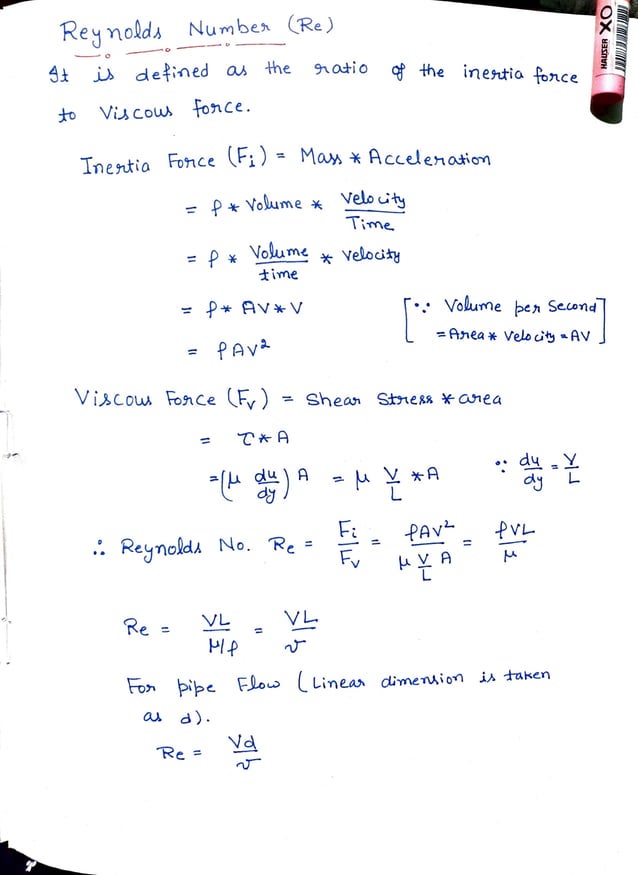 Reynolds Number (Re)
It is defined as the ratio of the inertia force
to Viscous force.
Inertia Force (Fi) = Mass * Acceleration
= ρ * Volume * Velocity/Time
= ρ * Volume/time * Velocity
= ρ * AV * V [∵ Volume per Second
= ρAV² = Area * Velocity = AV]
Viscous Force (Fv) = Shear Stress * area
= τ * A
= (μ du/dy) A = μ V/L * A ∵ du/dy = V/L
∴ Reynolds No. Re = Fi/Fv = ρAV²/(μ V/L A) = ρVL/μ
Re = VL/(μ/ρ) = VL/ν
For pipe Flow (Linear dimension is taken
as d).
Re = Vd/ν
HAUSER XO